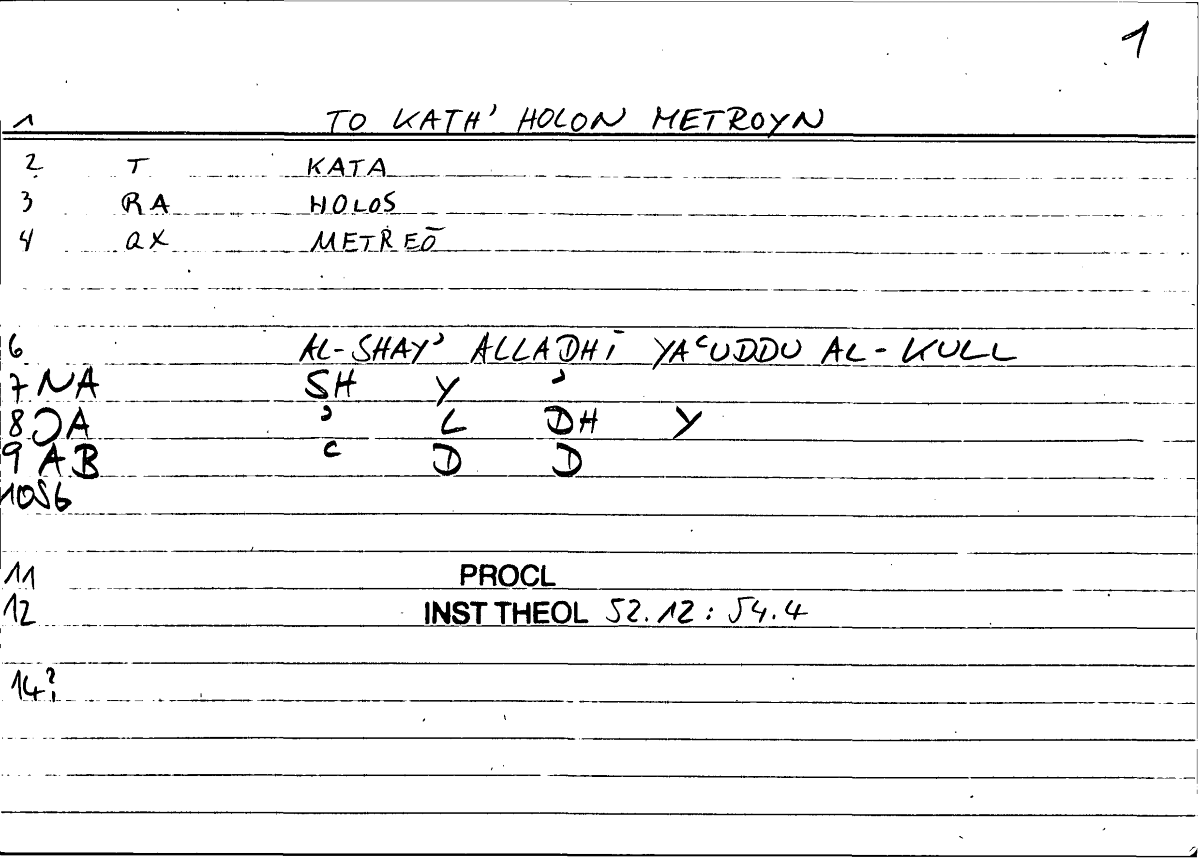 1
1 TO KATH' HOLON METROYN
2 T KATA
3 RA HOLOS
4 QX METREŌ
6 AL-SHAY' ALLADHĪ YAʿUDDU AL-KULL
7 NA SH Y '
8 JA ' L DH Y
9 AB ʿ D D
10 S6
11 PROCL
12 INST THEOL 52.12 : 54.4
14 ?